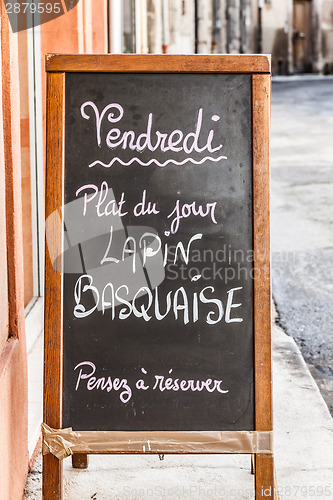 28795409
Vendredi
Plat du jour
LAPIN
à la
BASQUAISE
Pensez à réserver